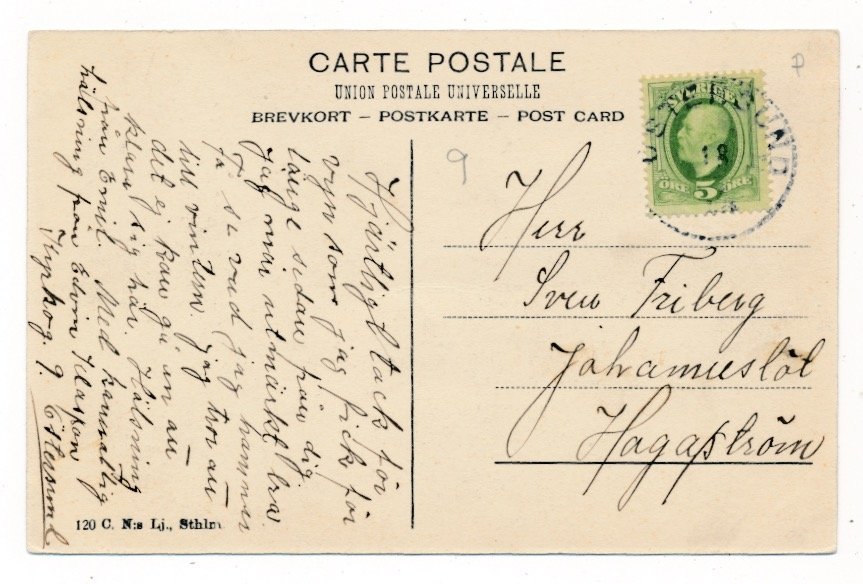 CARTE POSTALE
UNION POSTALE UNIVERSELLE
BREVKORT – POSTKARTE – POST CARD
SVERIGE
ÖRE 5 ÖRE
ÖSTERSUND
18
P
9
Herr
Sven Friberg
Johanneslöt
Hagaström
Hjärtligt tack för
vyn som jag fick för
länge sedan från dig.
Jag mår utmärkt bra
få se vad jag hamner
till vintern. Jag tror att
det ej kan gå, än att
klara sig här. Hälsning
från Emil. Med kamratlig
hälsning från Edvin Klasson
Kyrkog. 9. Östersund
120 C. N:s Lj., Sthlm